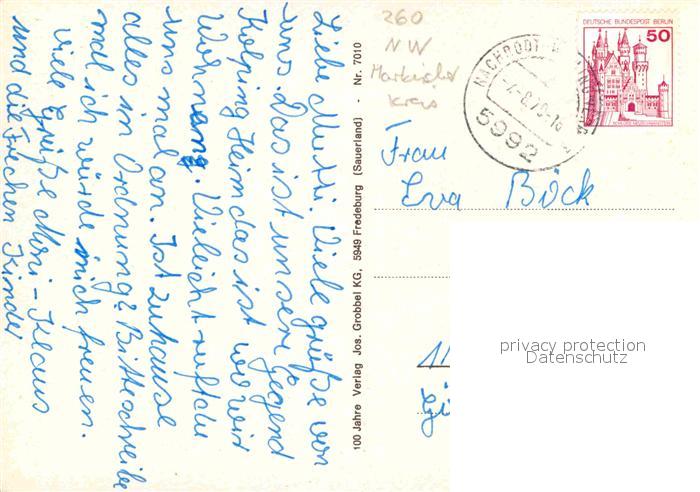 Liebe Mutti. Viele grüße von
uns. Das ist unsere Gegend
Kolping Heim das ist wo wir
Wohnen. Vieleicht rufst du
uns mal an. Ist zuhause
alles in Ordnung? Bitte schreibe
mal ich würde mich freuen.
Viele Grüße Moni - Klaus
und die Frechen Kinder
100 Jahre Verlag Jos. Grobbel KG, 5949 Fredeburg (Sauerland) - Nr. 7010
260
NW
Märkischer
Kreis
NACHRODT-
5992
DEUTSCHE BUNDESPOST BERLIN
50
Frau
Eva Böck
11
privacy protection
Datenschutz